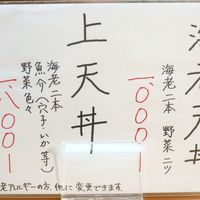 海老天丼
海老二本 野菜二ツ
一、〇〇〇ー
上天丼
海老二本
魚介(穴子・いか等)
野菜色々
老アレルギーの方、他に変更できます。